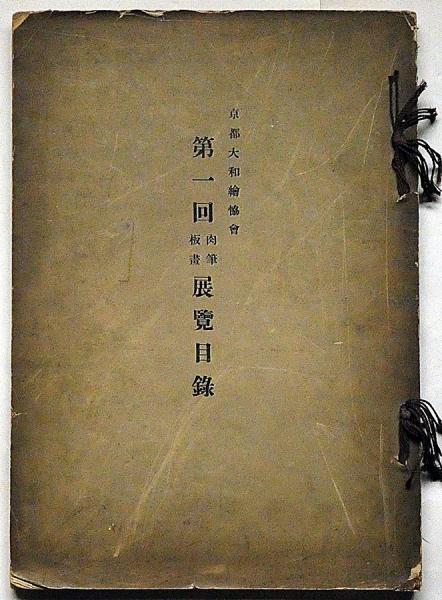 京都大和繪協會
第一回肉筆板畫展覽目錄